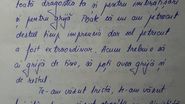 toată dragostea ta și pentru îmbrățișări
și pentru grijă. Poate că nu am petrecut
destul timp împreună dar cel petrecut
a fost extraordinar. Acum trebuie să
ai grijă de tine, să poți avea grijă și
de restul.
Te-am văzut tristă, te-am văzut